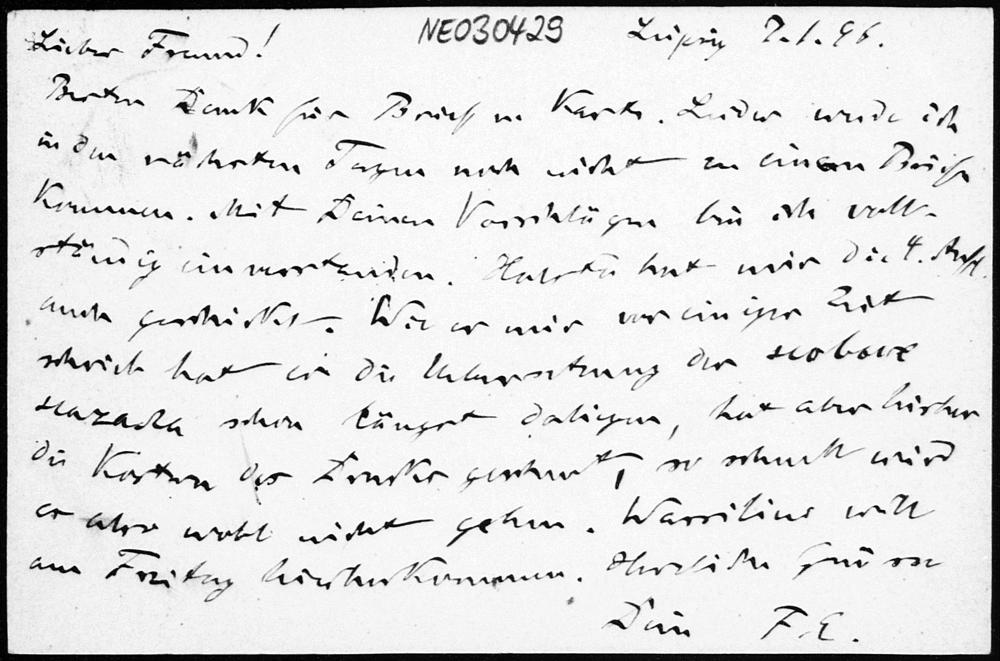 NE030429
Leipzig 7.1.96.
Lieber Freund!
Besten Dank für Brief u Karte. Leider werde ich
in den nächsten Tagen noch nicht zu einem Briefe
kommen. Mit Deinen Vorschlägen bin ich voll-
ständig einverstanden. hat mir die 4. Aufl.
auch geschickt. Wie er mir vor einiger Zeit
schrieb hat er die Uebersetzung der
schon längst daliegen, hat aber bisher
die Kosten des Druckes gescheut, so schnell wird
es also wohl nicht gehen. Wassiliew will
am Freitag hierherkommen. Herzliche Grüsse
Dein F.E.